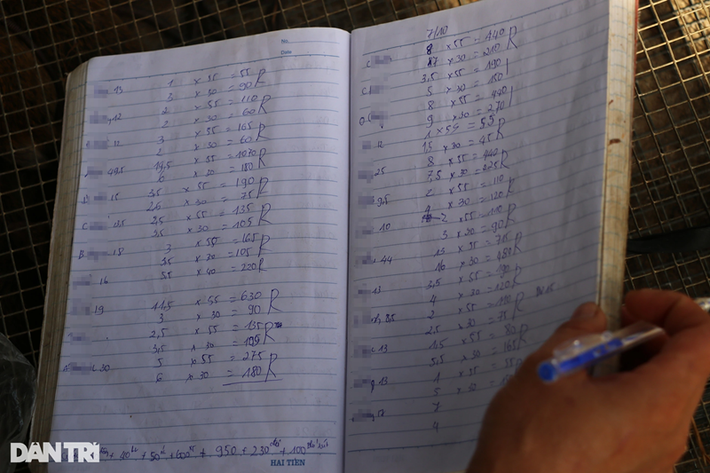 13 1 x 55 = 55 R
3 x 30 = 90
12 2 x 55 = 110 R
2 x 30 = 60
11 3 x 55 = 165 R
2 x 30 = 60
49,5 19,5 x 55 = 1070 R
6 x 30 = 180
15 3,5 x 55 = 190 R
2,5 x 30 = 75
2,5 x 55 = 135 R
3,5 x 30 = 105
18 3 x 55 = 165 R
3,5 x 30 = 105
5,5 x 40 = 220 R
16
19 11,5 x 55 = 630 R
3 x 30 = 90
2,5 x 55 = 135 R
3,5 x 30 = 105
30 5 x 55 = 275 R
6 x 30 = 180
950 + 230
HẢI TIẾN
7/10
8 x 55 = 440 R
x 30 = 210
3,5 x 55 = 190
5 x 30 = 150
8 x 55 = 440
9 x 30 = 270
1 x 55 = 55 R
12 15 x 30 = 45 R
25 8 x 55 = 440
7,5 x 30 = 225 R
2 x 55 = 110
10 4 x 30 = 120 R
2 x 55 = 110
3 x 30 = 90 R
44 13 x 55 = 715
x 30 =
13 3,5 x 55 = 190
4 x 30 = 120 R
2 x 55 = 110
2,5 x 30 = 75 R
13 1,5 x 55 = 80
5,5 x 30 = 165
13 1 x 55 = 55
5 x 30 =
17
4
DÂN TRÍ